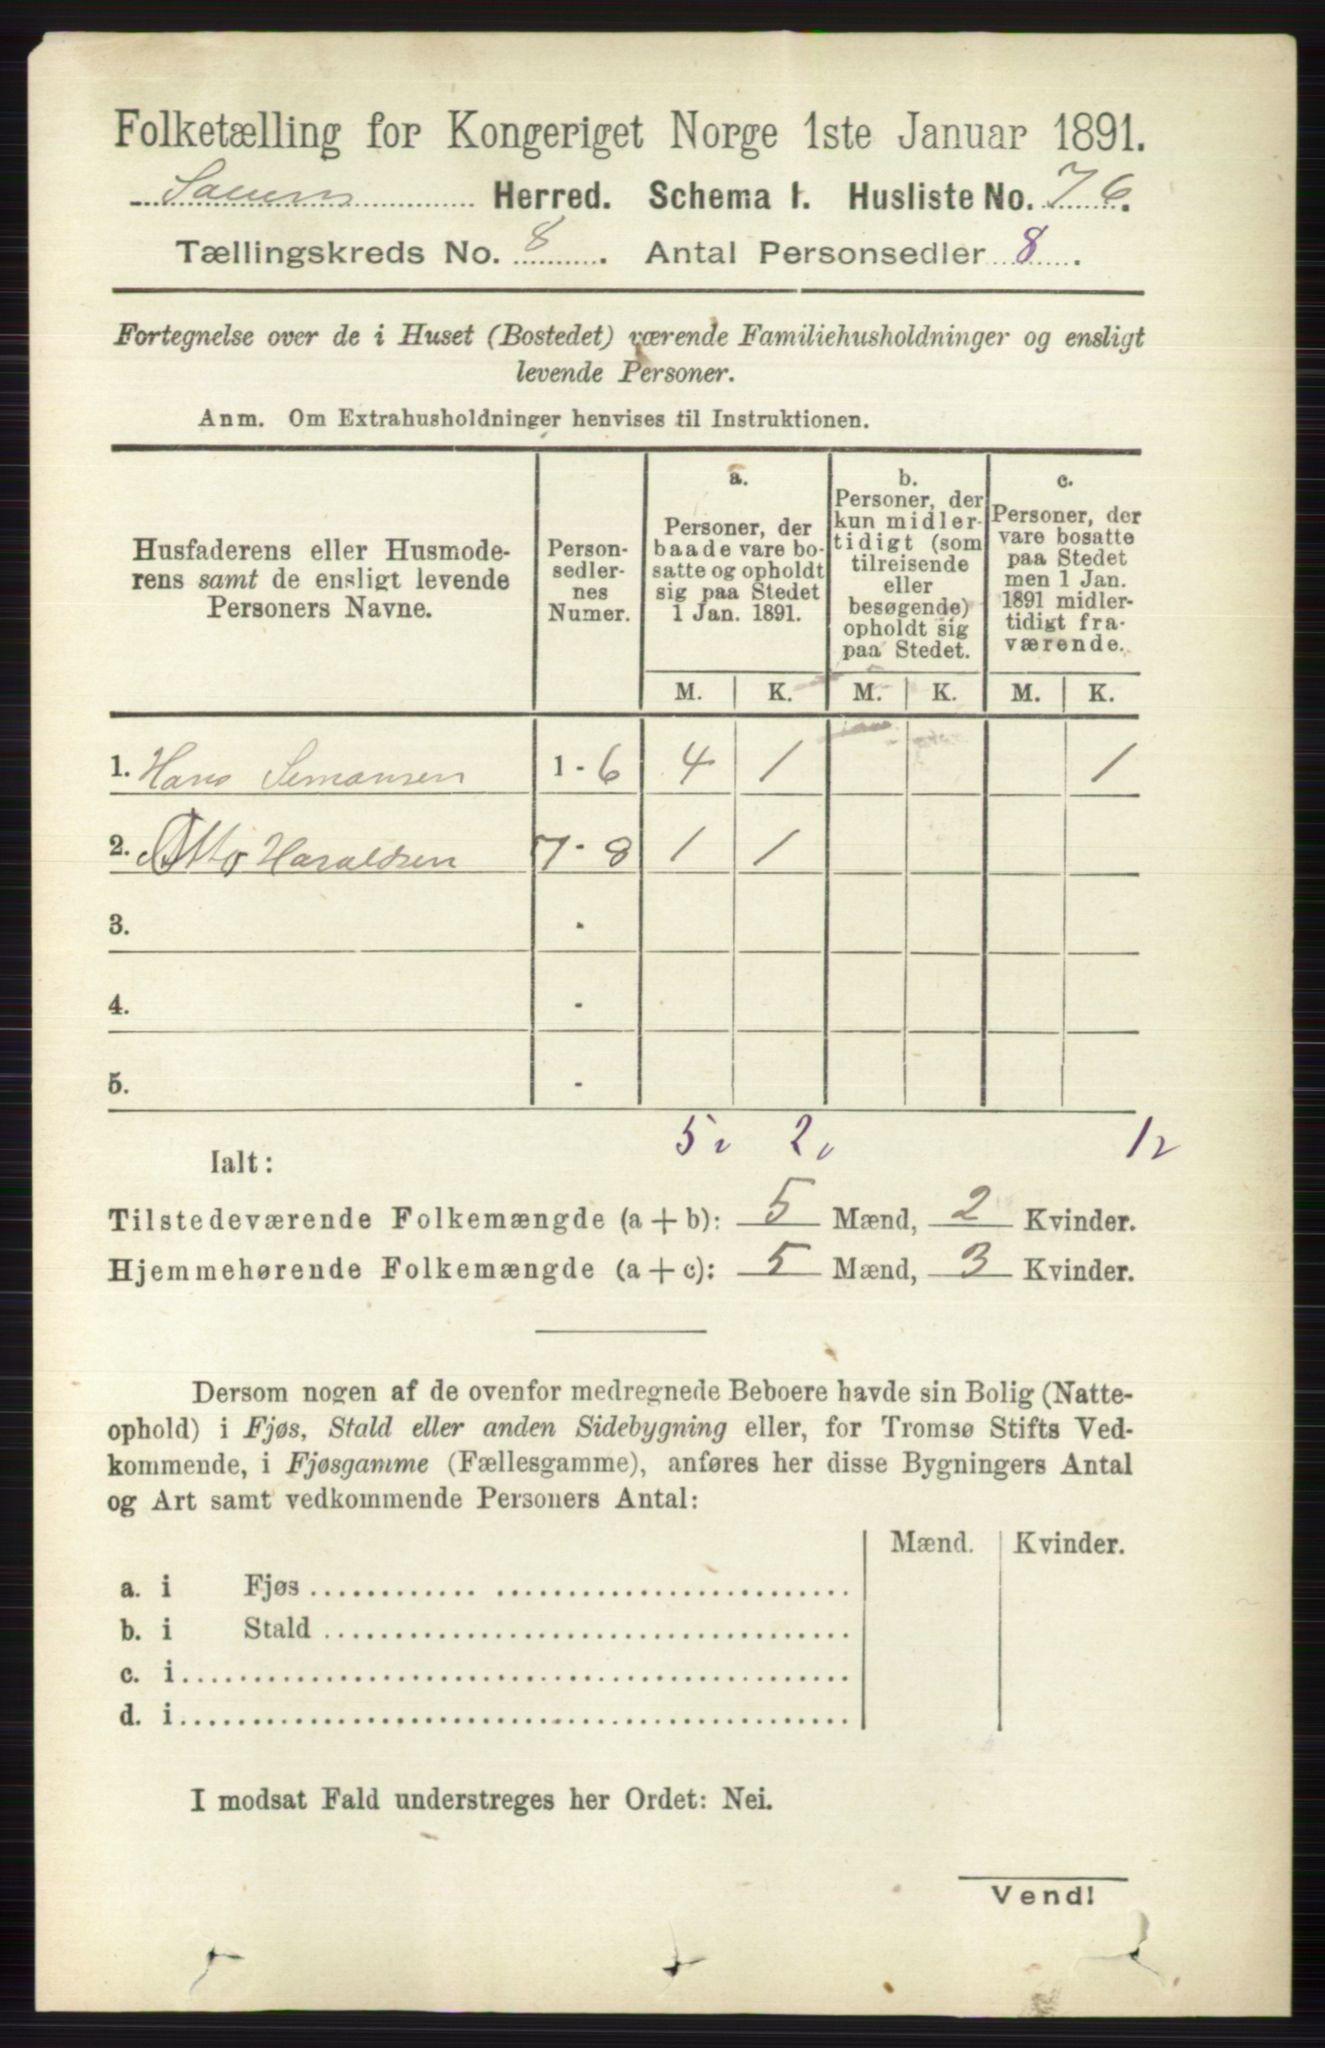 Folketælling for Kongeriget Norge 1ste Januar 1891.
Herred. Schema 1. Husliste No. 76.
Tællingskreds No. 8. Antal Personsedler 8.
Fortegnelse over de i Huset (Bostedet) værende Familiehusholdninger og ensligt
levende Personer.
Anm. Om Extrahusholdninger henvises til Instruktionen.
Husfaderens eller Husmode-
rens samt de ensligt levende
Personers Navne.
Person-
sedler-
nes
Numer.
a.
Personer, der
baade vare bo-
satte og opholdt
sig paa Stedet
1 Jan. 1891.
b.
Personer, der
kun midler-
tidigt (som
tilreisende
eller
besøgende)
opholdt sig
paa Stedet.
c.
Personer, der
vare bosatte
paa Stedet
men 1 Jan.
1891 midler-
tidigt fra-
værende.
M. K. M. K. M. K.
1. Hans Simonsen 1-6 4 1 1
2. Otto Haraldsen 7-8 1 1
3. -
4. -
5. -
5 2 1
Ialt:
Tilstedeværende Folkemængde (a+b): 5 Mænd, 2 Kvinder.
Hjemmehørende Folkemængde (a+c): 5 Mænd, 3 Kvinder.
Dersom nogen af de ovenfor medregnede Beboere havde sin Bolig (Natte-
ophold) i Fjøs, Stald eller anden Sidebygning eller, for Tromsø Stifts Ved-
kommende, i Fjøsgamme (Fællesgamme), anføres her disse Bygningers Antal
og Art samt vedkommende Personers Antal:
Mænd. Kvinder.
a. i Fjøs
b. i Stald
c. i
d. i
I modsat Fald understreges her Ordet: Nei.
Vend!